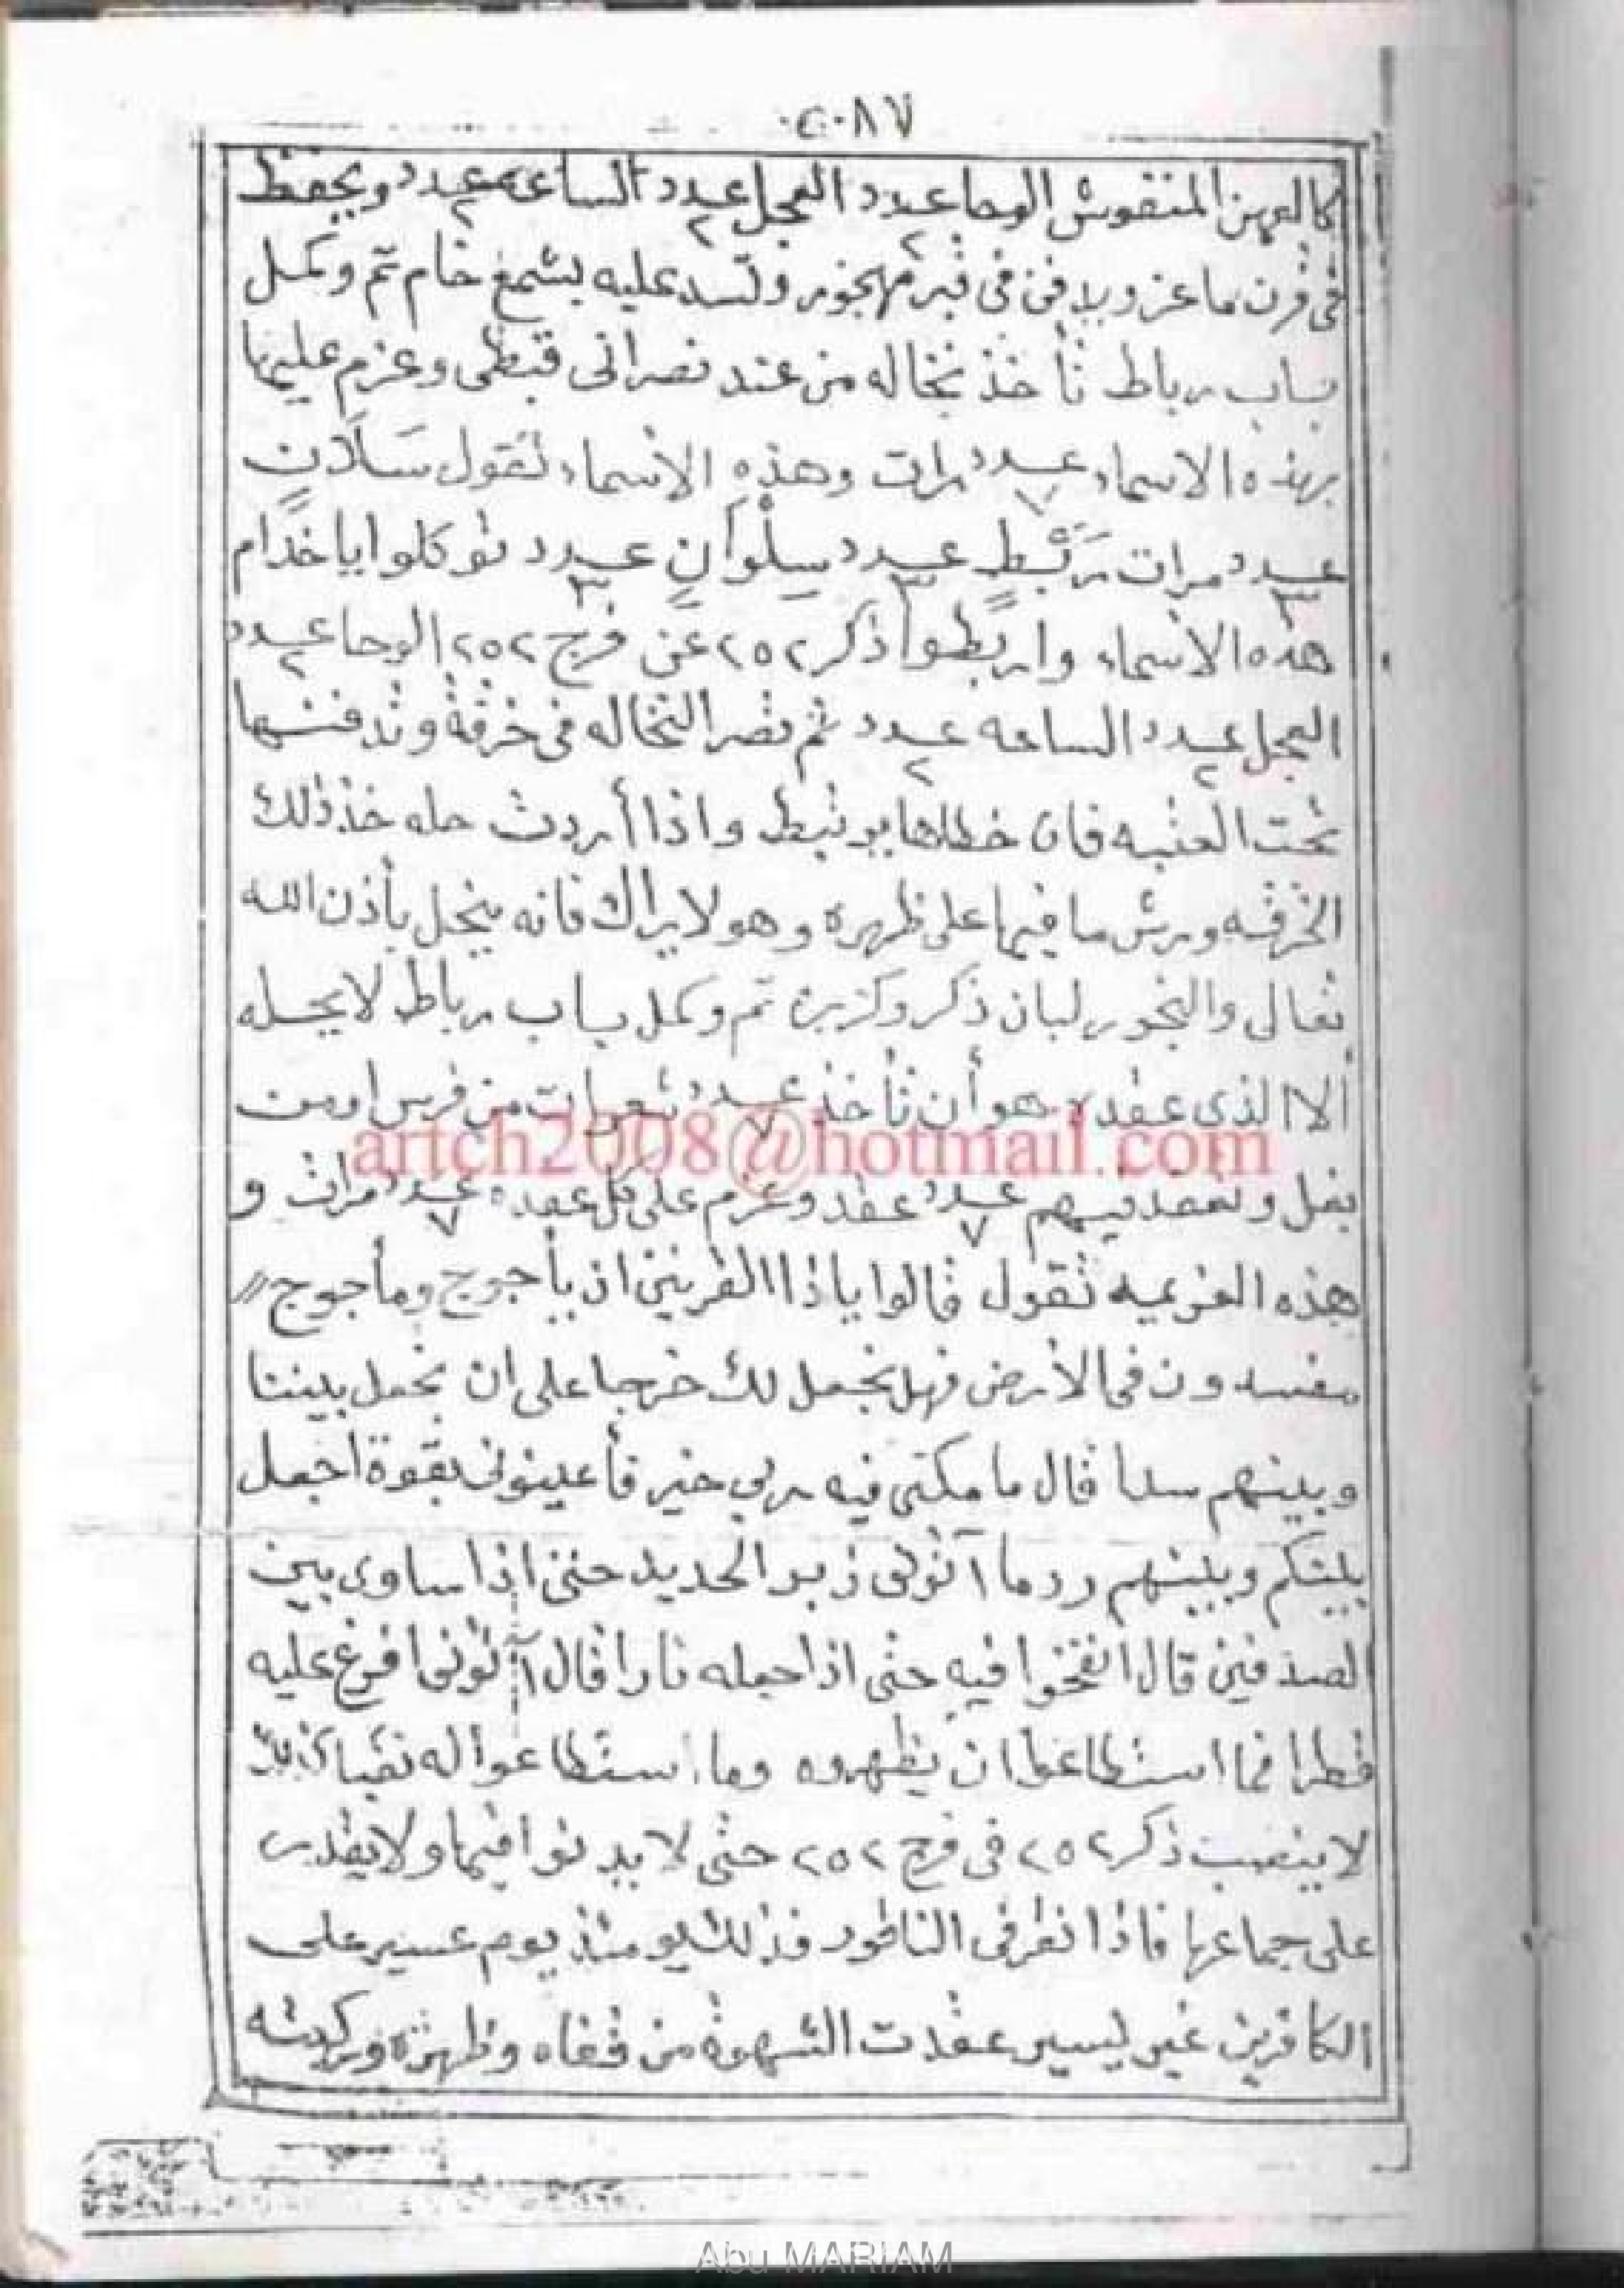 ٠٢٠٨٧
كالعهن المنفوش الوحا عدد ٢ العجل عدد ٢ الساعه عدد ٢ ويحفظ
فى قرن ماعز ويدفن فى قبر مهجور وتسد عليه بشمع خام تم وكمل
باب رباط تأخذ نخاله من عند نصرانى قبطى وعزم عليها
بهذه الاسماء عدد ٧ مرات وهذه الاسماء تقول سَلَانٍ
عدد ٣ مرات مَرَبْبَطٍ عدد ٣ سِلْوَانٍ عدد ٣ توكلوا ياخدام
هذه الاسماء واربطوا ذكر ٢٥٢ عن فرج ٢٥٢ الوحا عدد ٢
العجل عدد ٢ الساعه عدد ٢ ثم تضر النخاله فى خرقة وتدفنها
تحت العتبه فان خطاها يرتبط واذا أردت حله خذ ذلك
الخرقه ورش ما فيها على ظهره وهو لا يراك فانه ينحل بأذن الله
تعالى والبخور لبان ذكر وكزبرة تم وكمل باب رباط لا يحله
ألا الذى عقده وهو أن تأخذ عدد ٧ شعرات من فرس او من
بغل وتعقد فيهم عدد ٧ عقد وعزم على كل عقده عدد ٧ مرات و
هذه العزيمه تقول قالوا ياذا القرنين ان يأجوج ومأجوج //
مفسدون فى الأرض فهل نجعل لك خرجا على ان تجعل بيننا
وبينهم سدا قال ما مكنى فيه ربي خير فأعينونى بقوة اجعل
بينكم وبينهم ردما آتونى زبر الحديد حتى اذا ساوى بين
الصدفين قال انفخوا فيه حتى اذا جعله نارا قال آتونى افرغ عليه
قطرا فما استطاعوا ان يظهروه وما استطاعوا له نقبا كذلك
لا ينصب ذكر ٢٥٢ فى فرج ٢٥٢ حتى لا يدنوا فيها ولا يقدر
على جماعها فاذا نقر فى الناقور فذلك يومئذ يوم عسير على
الكافرين غير يسير عقدت الشهوة من قفاه وظهره وركبته
artch2008@hotmail.com
Abu MARIAM